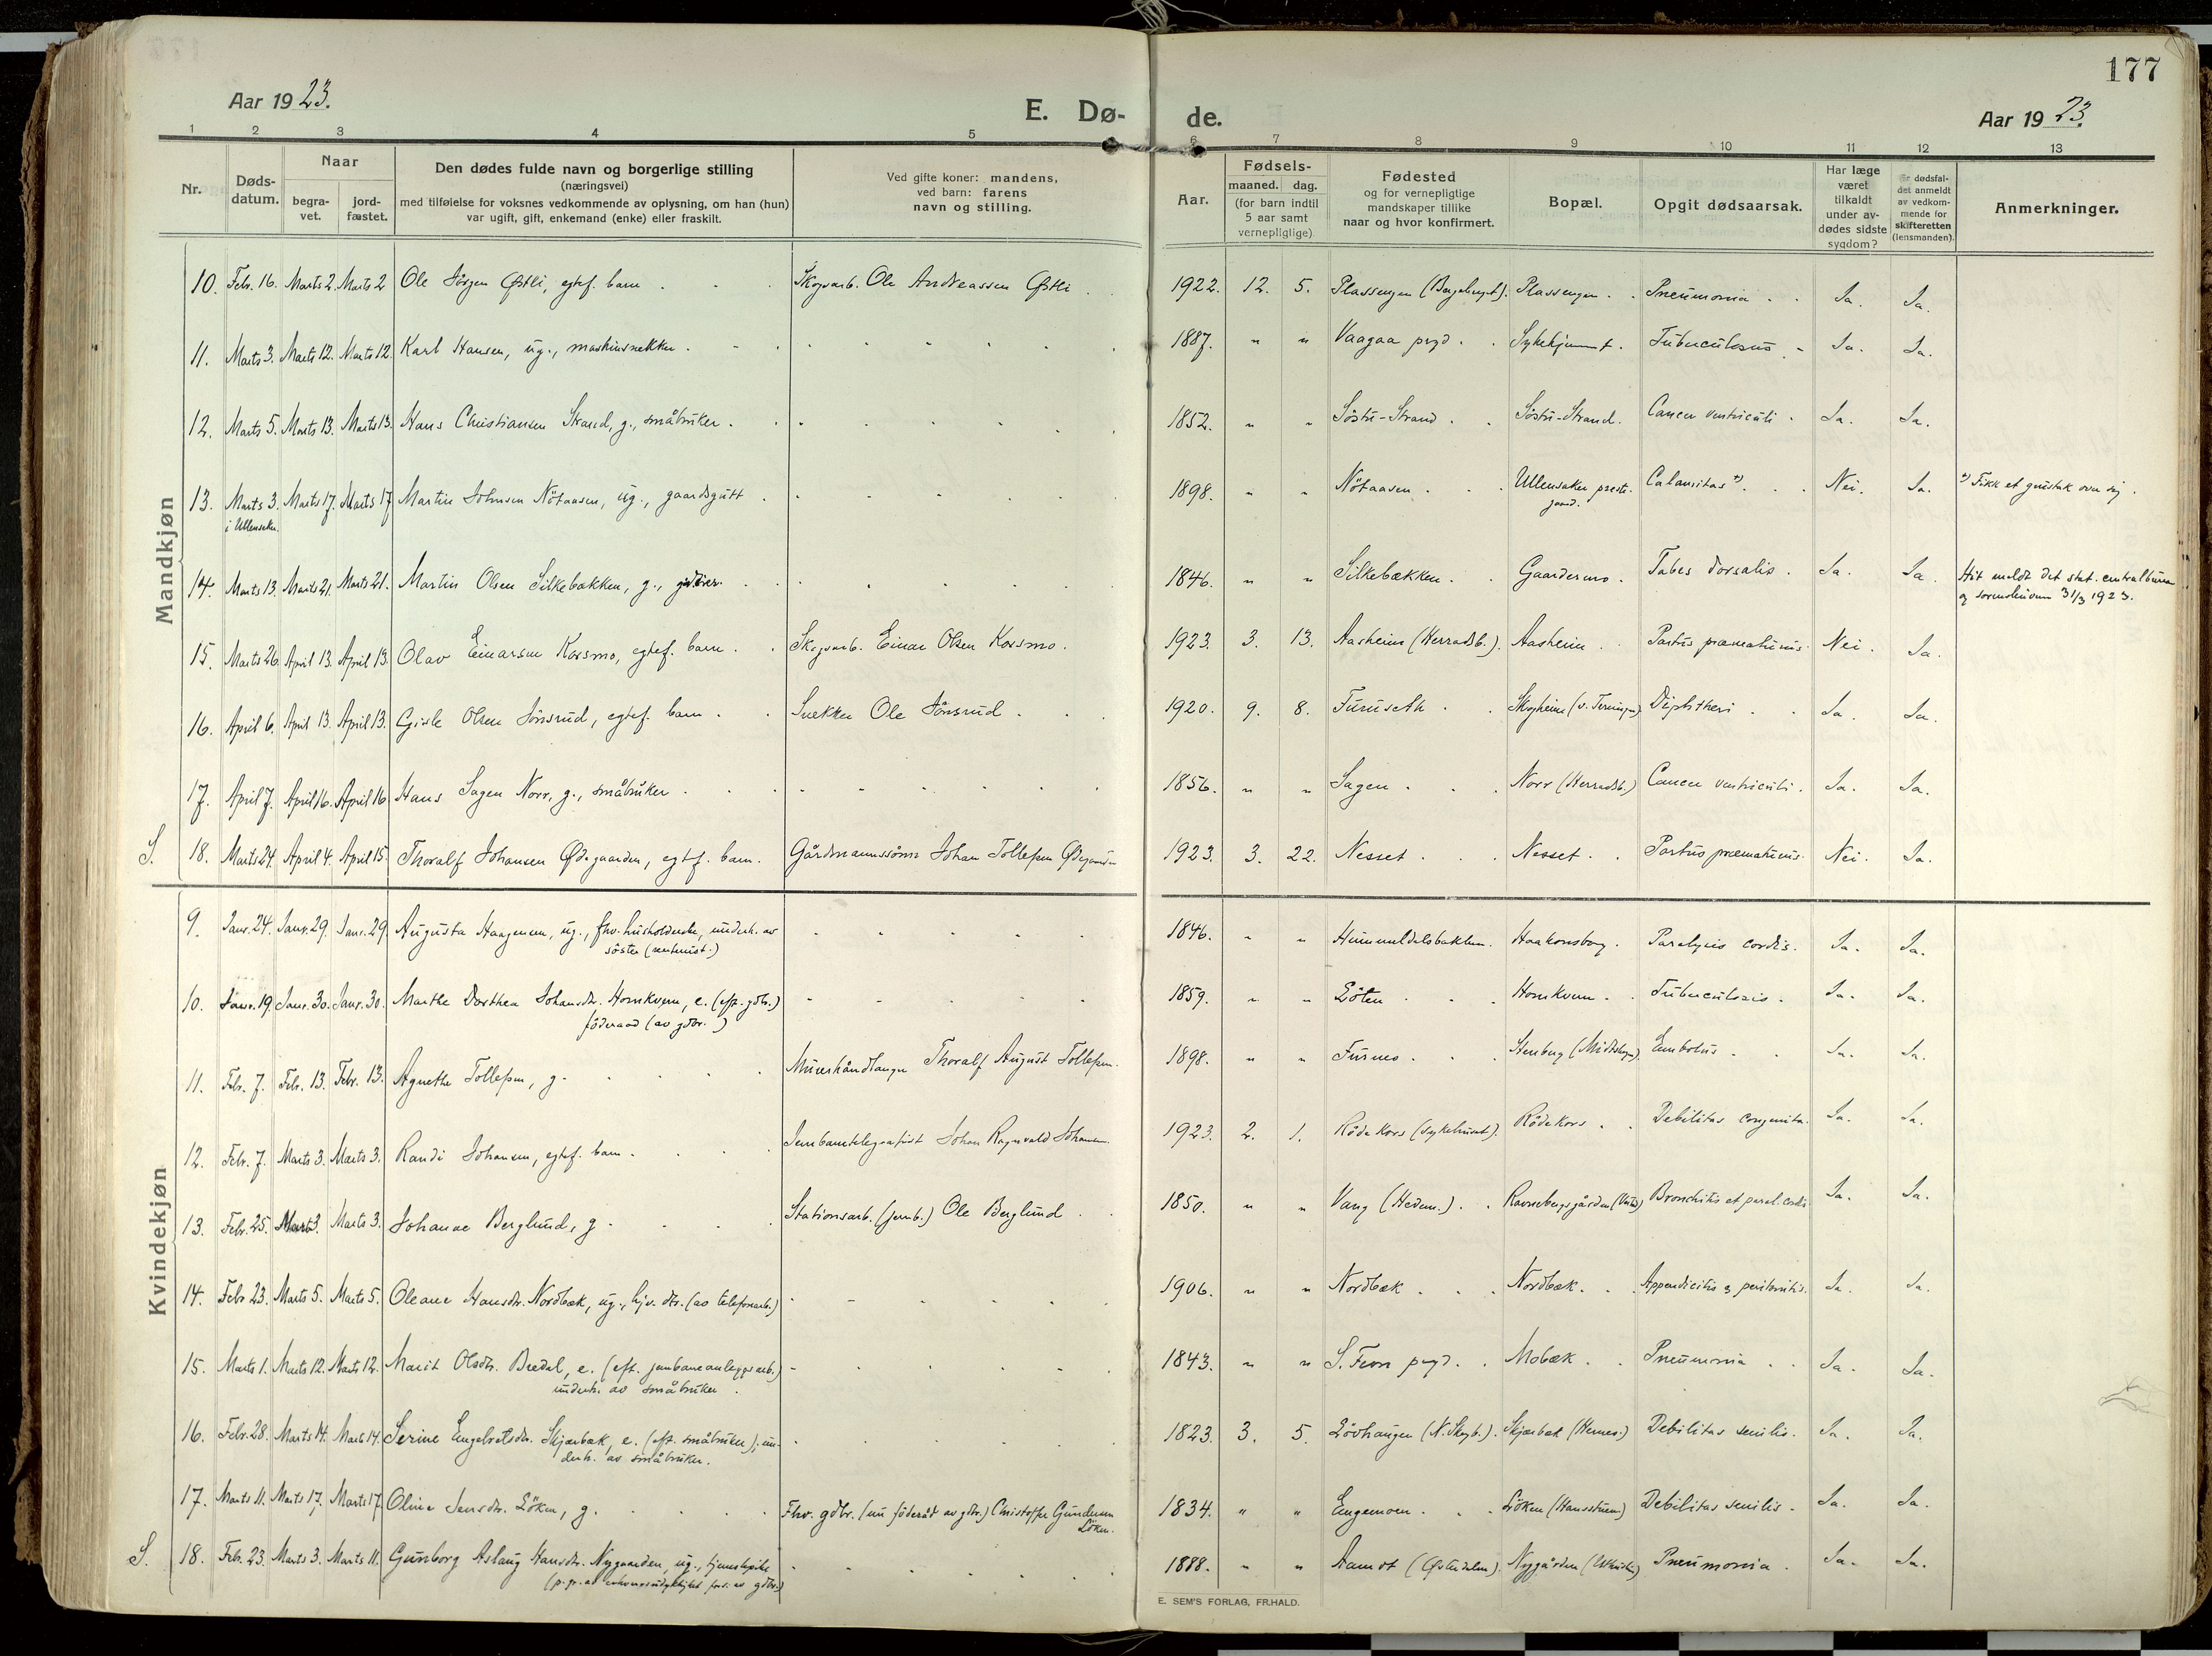 177
Aar 1923.
E. Dø-
de.
Aar 1923.
1 2 3 4 5 6 7 8 9 10 11 12 13
Nr.
Døds-
datum.
Naar
begra-
vet.
jord-
fæstet.
Den dødes fulde navn og borgerlige stilling
(næringsvei)
med tilføielse for voksnes vedkommende av oplysning, om han (hun)
var ugift, gift, enkemand (enke) eller fraskilt.
Ved gifte koner: mandens,
ved barn: farens
navn og stilling.
Aar.
Fødsels-
maaned. dag.
(for barn indtil
5 aar samt
vernepligtige).
Fødested
og for vernepligtige
mandskaper tillike
naar og hvor konfirmert.
Bopæl.
Opgit dødsaarsak.
Har læge
været
tilkaldt
under av-
dødes sidste
sygdom?
Er dødsfal-
det anmeldt
av vedkom-
mende for
skifteretten
(lensmanden).
Anmerkninger.
Mandkjøn
10. Febr. 16. Marts 2. Marts 2 Ole Jörgen Østli, egtef. barn Skogsarb. Ole Andreassen Østli 1922. 12. 5. Plassengen Plassengen Pneumonia Ja. Ja.
11. Marts 3. Marts 12. Marts 12. Karl Hansen, ug., maskinsnekker 1887. " " Vaagaa prgd. Sykehjemmet. Tuberculosis Ja. Ja.
12. Marts 5. Marts 13. Marts 13. Hans Christiansen Strand, g., småbruker 1852. " " Söstu-Strand Söstu-Strand. Cancer ventriculi Ja. Ja.
13. Marts 3. Marts 17. Marts 17 Martin Johnsen Nötaasen, ug., gaardsgutt 1898. " " Nötaasen Ullensaker preste- Calamitas *) Nei. Ja. *) Fikk et grustak over sig.
i Ullensaker. gaard.
14. Marts 13. Marts 21. Marts 21. Martin Olsen Silkebakken, g., 1846. " " Silkebækken Gaardermo. Tabes dorsalis. Ja. Ja. Hit meldt det stat. centralbureau
og sorenskriveren 31/3 1923.
15. Marts 26. April 13. April 13. Olav Einarsen Korsmo, egtef. barn Skogsarb. Einar Olsen Korsmo. 1923. 3. 13. Aasheim (Herradsb.). Aasheim Partus præmaturus. Nei. Ja.
16. April 6. April 13. April 13. Gisle Olsen Jönsrud, egtef. barn Snekker Ole Jönsrud 1920. 9. 8. Furuseth Skogheim (v. Terningen) Diphtheri Ja. Ja.
17. April 7. April 16. April 16 Hans Sagen Norr, g., småbruker 1856. " " Sagen Norr (Herradsb.) Cancer ventriculi. Ja. Ja.
S. 18. Marts 24. April 4. April 15. Thoralf Johansen Ødegaarden, egtf. barn. Gårdmannssönn Johan Tollefsen Ødegaarden 1923. 3. 22. Nesset Nesset Partus præmaturus. Nei. Ja.
Kvindekjøn
9. Janr. 24. Janr. 29. Janr. 29. Augusta Haagensen, ug., fhv. husholderske, underh. av 1846. " " Hummeldalsbakken. Haakonsborg. Paralysis cordis. Ja. Ja.
söster
10. Janr. 19. Janr. 30. Janr. 30. Marthe Dorthea Johansdr. Hornkvern, e. (eft. gdbr.) 1859. " " Löten Hornkvern Tuberculosis. Ja. Ja.
föderaad (av gdbr.)
11. Febr. 7. Febr. 13. Febr. 13. Agnethe Tollefsen, g. Murerhåndlanger Thoralf August Tollefsen. 1898. " " Furnes Stenberg Embolus Ja. Ja.
12. Febr. 7. Marts 3. Marts 3. Randi Johansen, egtef. barn Jernbanetelegrafist Johan Ragnvald Johansen. 1923. 2. 1. Röde Kors (sykehuset). Röde Kors Debilitas congenita. Ja. Ja.
13. Febr. 25. Marts 3. Marts 3. Johanne Berglund, g. Stationsarb. (jernb.) Ole Berglund 1850. " " Vang (Hedem.) Ravnebergsgården Bronchitis et paral. cordis Ja. Ja.
14. Febr. 23. Marts 5. Marts 5. Oleane Hansdr. Nordbæk, ug., hjv. dtr. (av telefonarb.) 1906. " " Nordbæk Nordbæk. Appendicitis & peritonitis. Ja. Ja.
15. Marts 1. Marts 12. Marts 12. Marit Olsdr. Bredal, e. (eft. jernbaneanleggsarb.) 1843. " " S. Fron prgd. Mobæk Pneumonia Ja. Ja.
underh. av småbruker
16. Febr. 28. Marts 14. Marts 14. Serine Engebretsdr. Skjærbæk, e. (eft. småbruker), un- 1823. 3. 5. Lövhaugen (N. Skogb.). Skjærbæk (Hernes.) Debilitas senilis. Ja. Ja.
derh. av småbruker.
17. Marts 11. Marts 17. Marts 17 Oline Jensdr. Löken, g. Fhv. gdbr. (nu föderåd av gdbr.) Christoffer Gundersen 1834. " " Engemoen Löken Debilitas senilis. Ja. Ja.
Löken.
S. 18. Febr. 23. Marts 3. Marts 11. Gunborg Aslaug Hansdr. Nygaarden, ug., tjenestepike 1888. " " Aamot (Østerdalen). Nygården Pneumonia Ja. Ja.
(p. gr. av gdbr.)
E. SEM'S FORLAG, FR.HALD.